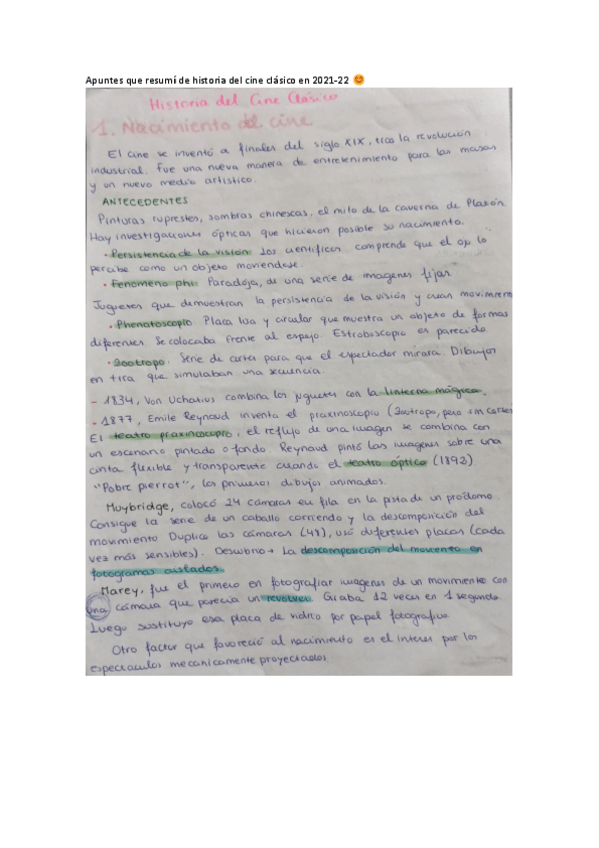 Apuntes que resumí de historia del cine clásico en 2021-22
Historia del Cine Clásico
1. Nacimiento del cine
El cine se inventó a finales del siglo XIX, tras la revolución
industrial. Fue una nueva manera de entretenimiento para las masas
y un nuevo medio artístico.
ANTECEDENTES
Pinturas rupestres, sombras chinescas, el mito de la caverna de Platón.
Hay investigaciones ópticas que hicieron posible su nacimiento.
· Persistencia de la visión. Los científicos comprende que el ojo lo
percibe como un objeto moviendose.
· Fenomeno phi: Paradoja, de una serie de imagenes fijas.
Juguetes que demuestran la persistencia de la visión y crean movimiento
· Phenatoscopio Placa lisa y circular que muestra un objeto de formas
diferentes Se colocaba frente al espejo. Estroboscopio es parecido.
· Zootropo. Serie de cortes para que el espectador mirara. Dibujos
en tira que simulaban una secuencia.
- 1834, Von Uchatius combina los juguetes con la linterna mágica.
- 1877, Emile Reynaud inventa el praxinoscopio (Zootropo, pero sin cortes
El teatro praxinoscopio, el reflejo de una imagen se combina con
un escenario pintado o fondo. Reynaud pintó las imagenes sobre una
cinta flexible y transparente creando el teatro óptico (1892)
"Pobre pierrot", los primeros dibujos animados.
Muybridge, colocó 24 cámaras en fila en la pista de un
Consigue la serie de un caballo corriendo y la descomposición del
movimiento Duplico las cámaras (48), usó diferentes placas (cada
vez más sensibles). Descubrio → La descomposición del movimiento en
fotogramas aislados.
Marey, fue el primero en fotografiar imagenes de un movimiento con
una cámara que parecia un revolver. Graba 12 veces en 1 segundo.
Luego sustituyo esa placa de vidrio por papel fotografico.
Otro factor que favoreció al nacimiento es el interes por los
espectaculos mecanicamente proyectados